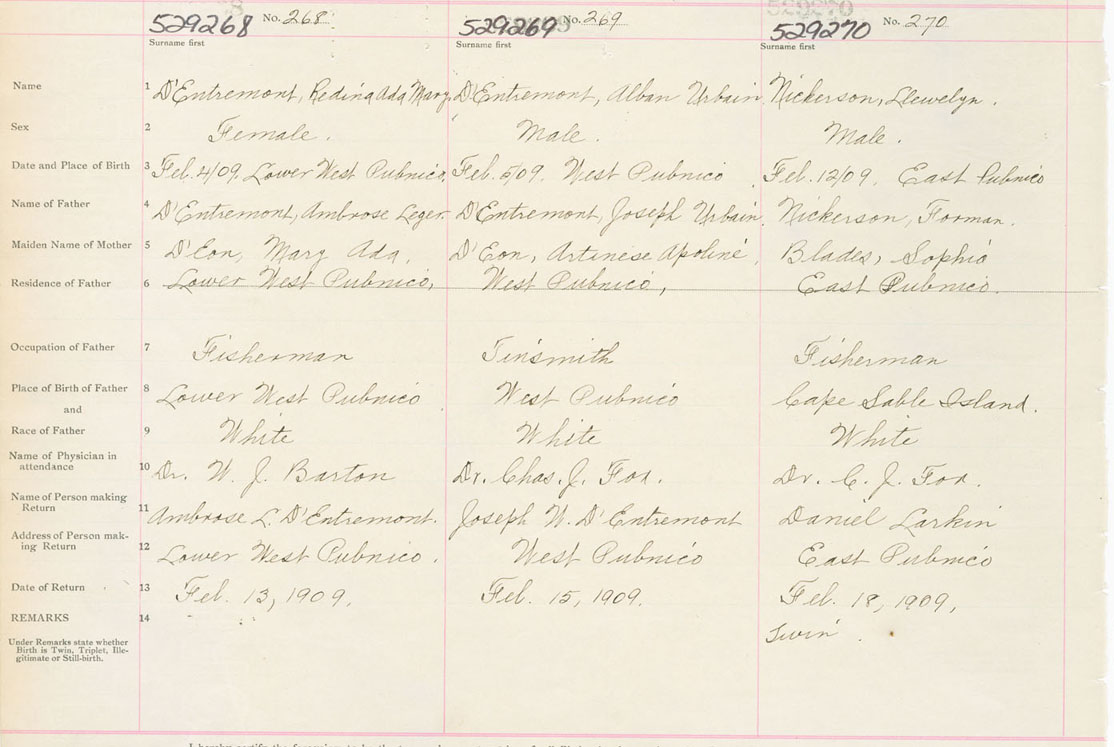 529268 No. 268 529269 No. 269 529270 No. 270
Surname first Surname first Surname first
Name 1 D'Entremont, Redina Ada Mary. D'Entremont, Alban Urbain Nickerson, Llewelyn.
Sex 2 Female. Male. Male.
Date and Place of Birth 3 Feb. 4/09. Lower West Pubnico. Feb. 5/09. West Pubnico Feb. 12/09. East Pubnico
Name of Father 4 D'Entremont, Ambrose Leger. D'Entremont, Joseph Urbain. Nickerson, Forman.
Maiden Name of Mother 5 D'Eon, Mary Ada. D'Eon, Artinese Apoliné, Blades, Sophia
Residence of Father 6 Lower West Pubnico, West Pubnico, East Pubnico.
Occupation of Father 7 Fisherman Tinsmith Fisherman
Place of Birth of Father 8 Lower West Pubnico West Pubnico Cape Sable Island.
and
Race of Father 9 White White White
Name of Physician in
attendance 10 Dr. W. J. Barton Dr. Chas. J. Fox. Dr. C. J. Fox.
Name of Person making
Return 11 Ambrose L. D'Entremont. Joseph U. D'Entremont Daniel Larkin
Address of Person mak-
ing Return 12 Lower West Pubnico. West Pubnico East Pubnico
Date of Return 13 Feb. 13, 1909. Feb. 15, 1909. Feb. 18, 1909,
REMARKS 14 Twin.
Under Remarks state whether
Birth is Twin, Triplet, Ille-
gitimate or Still-birth.